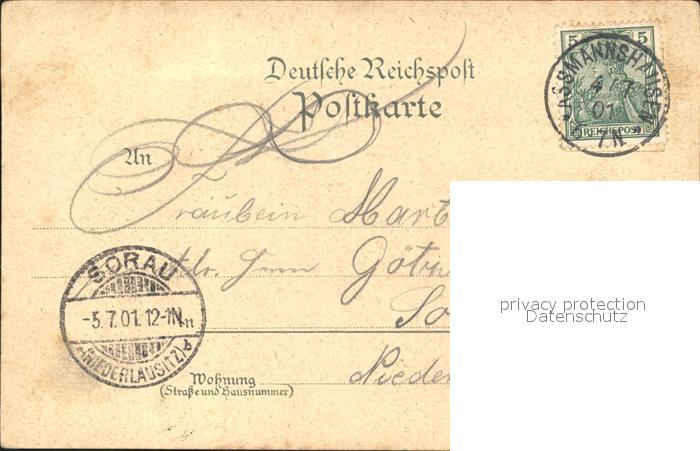 Deutsche Reichspost
Postkarte
5 5
REICHSPOST
ASSMANNSHAUSEN
4 7
01
7.N
An
Fräulein Mart
Adr. Herrn
So
SORAU
-5.7.01.12-1N.
(NIEDERLAUSITZ)
in
Wohnung
(Straße und Hausnummer)
Nieder
privacy protection
Datenschutz